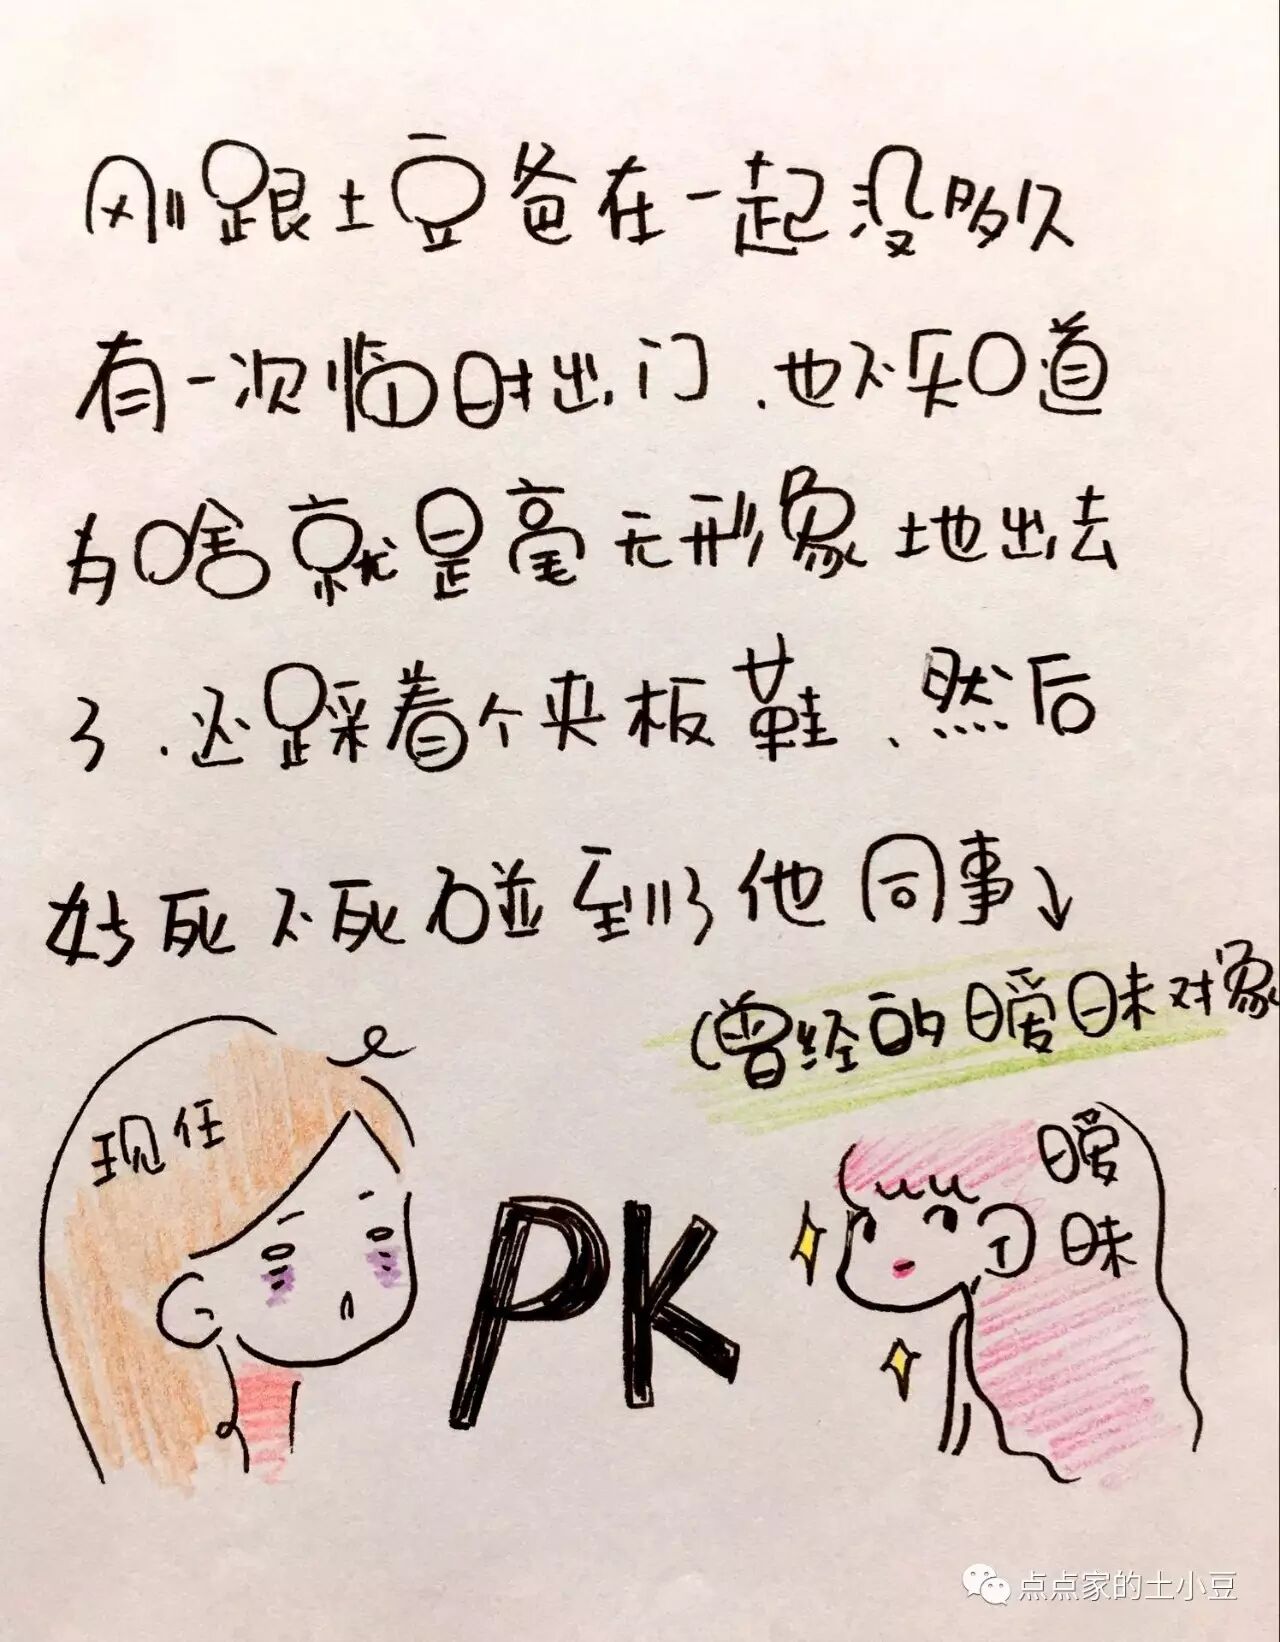 刚跟土豆爸在一起没多久
有一次临时出门、也不知道
为啥就是毫无形象地出去
了、还踩着个夹板鞋、然后
好死不死碰到了他同事↓
(曾经的暧昧对象
现任
PK
暧
昧
点点家的土小豆